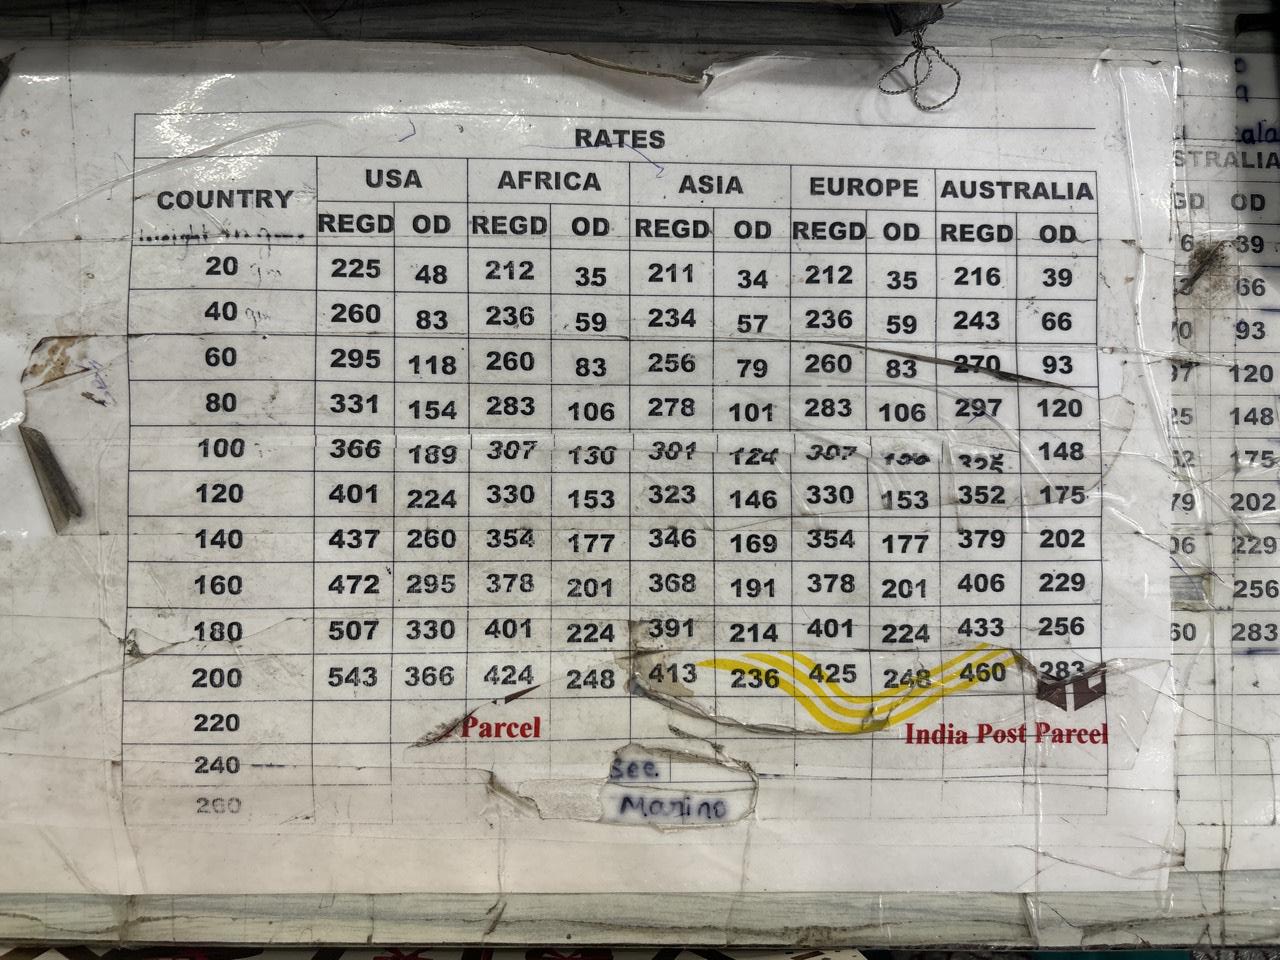 RATES
COUNTRY USA AFRICA ASIA EUROPE AUSTRALIA
REGD OD REGD OD REGD OD REGD OD REGD OD
20 gm 225 48 212 35 211 34 212 35 216 39
40 gm 260 83 236 59 234 57 236 59 243 66
60 295 118 260 83 256 79 260 83 270 93
80 331 154 283 106 278 101 283 106 297 120
100 366 189 307 130 301 124 307 130 325 148
120 401 224 330 153 323 146 330 153 352 175
140 437 260 354 177 346 169 354 177 379 202
160 472 295 378 201 368 191 378 201 406 229
180 507 330 401 224 391 214 401 224 433 256
200 543 366 424 248 413 236 425 248 460 283
220
Parcel India Post Parcel
240 See
260
STRALIA
GD OD
6 39
66
93
97 120
25 148
175
79 202
06 229
256
60 283